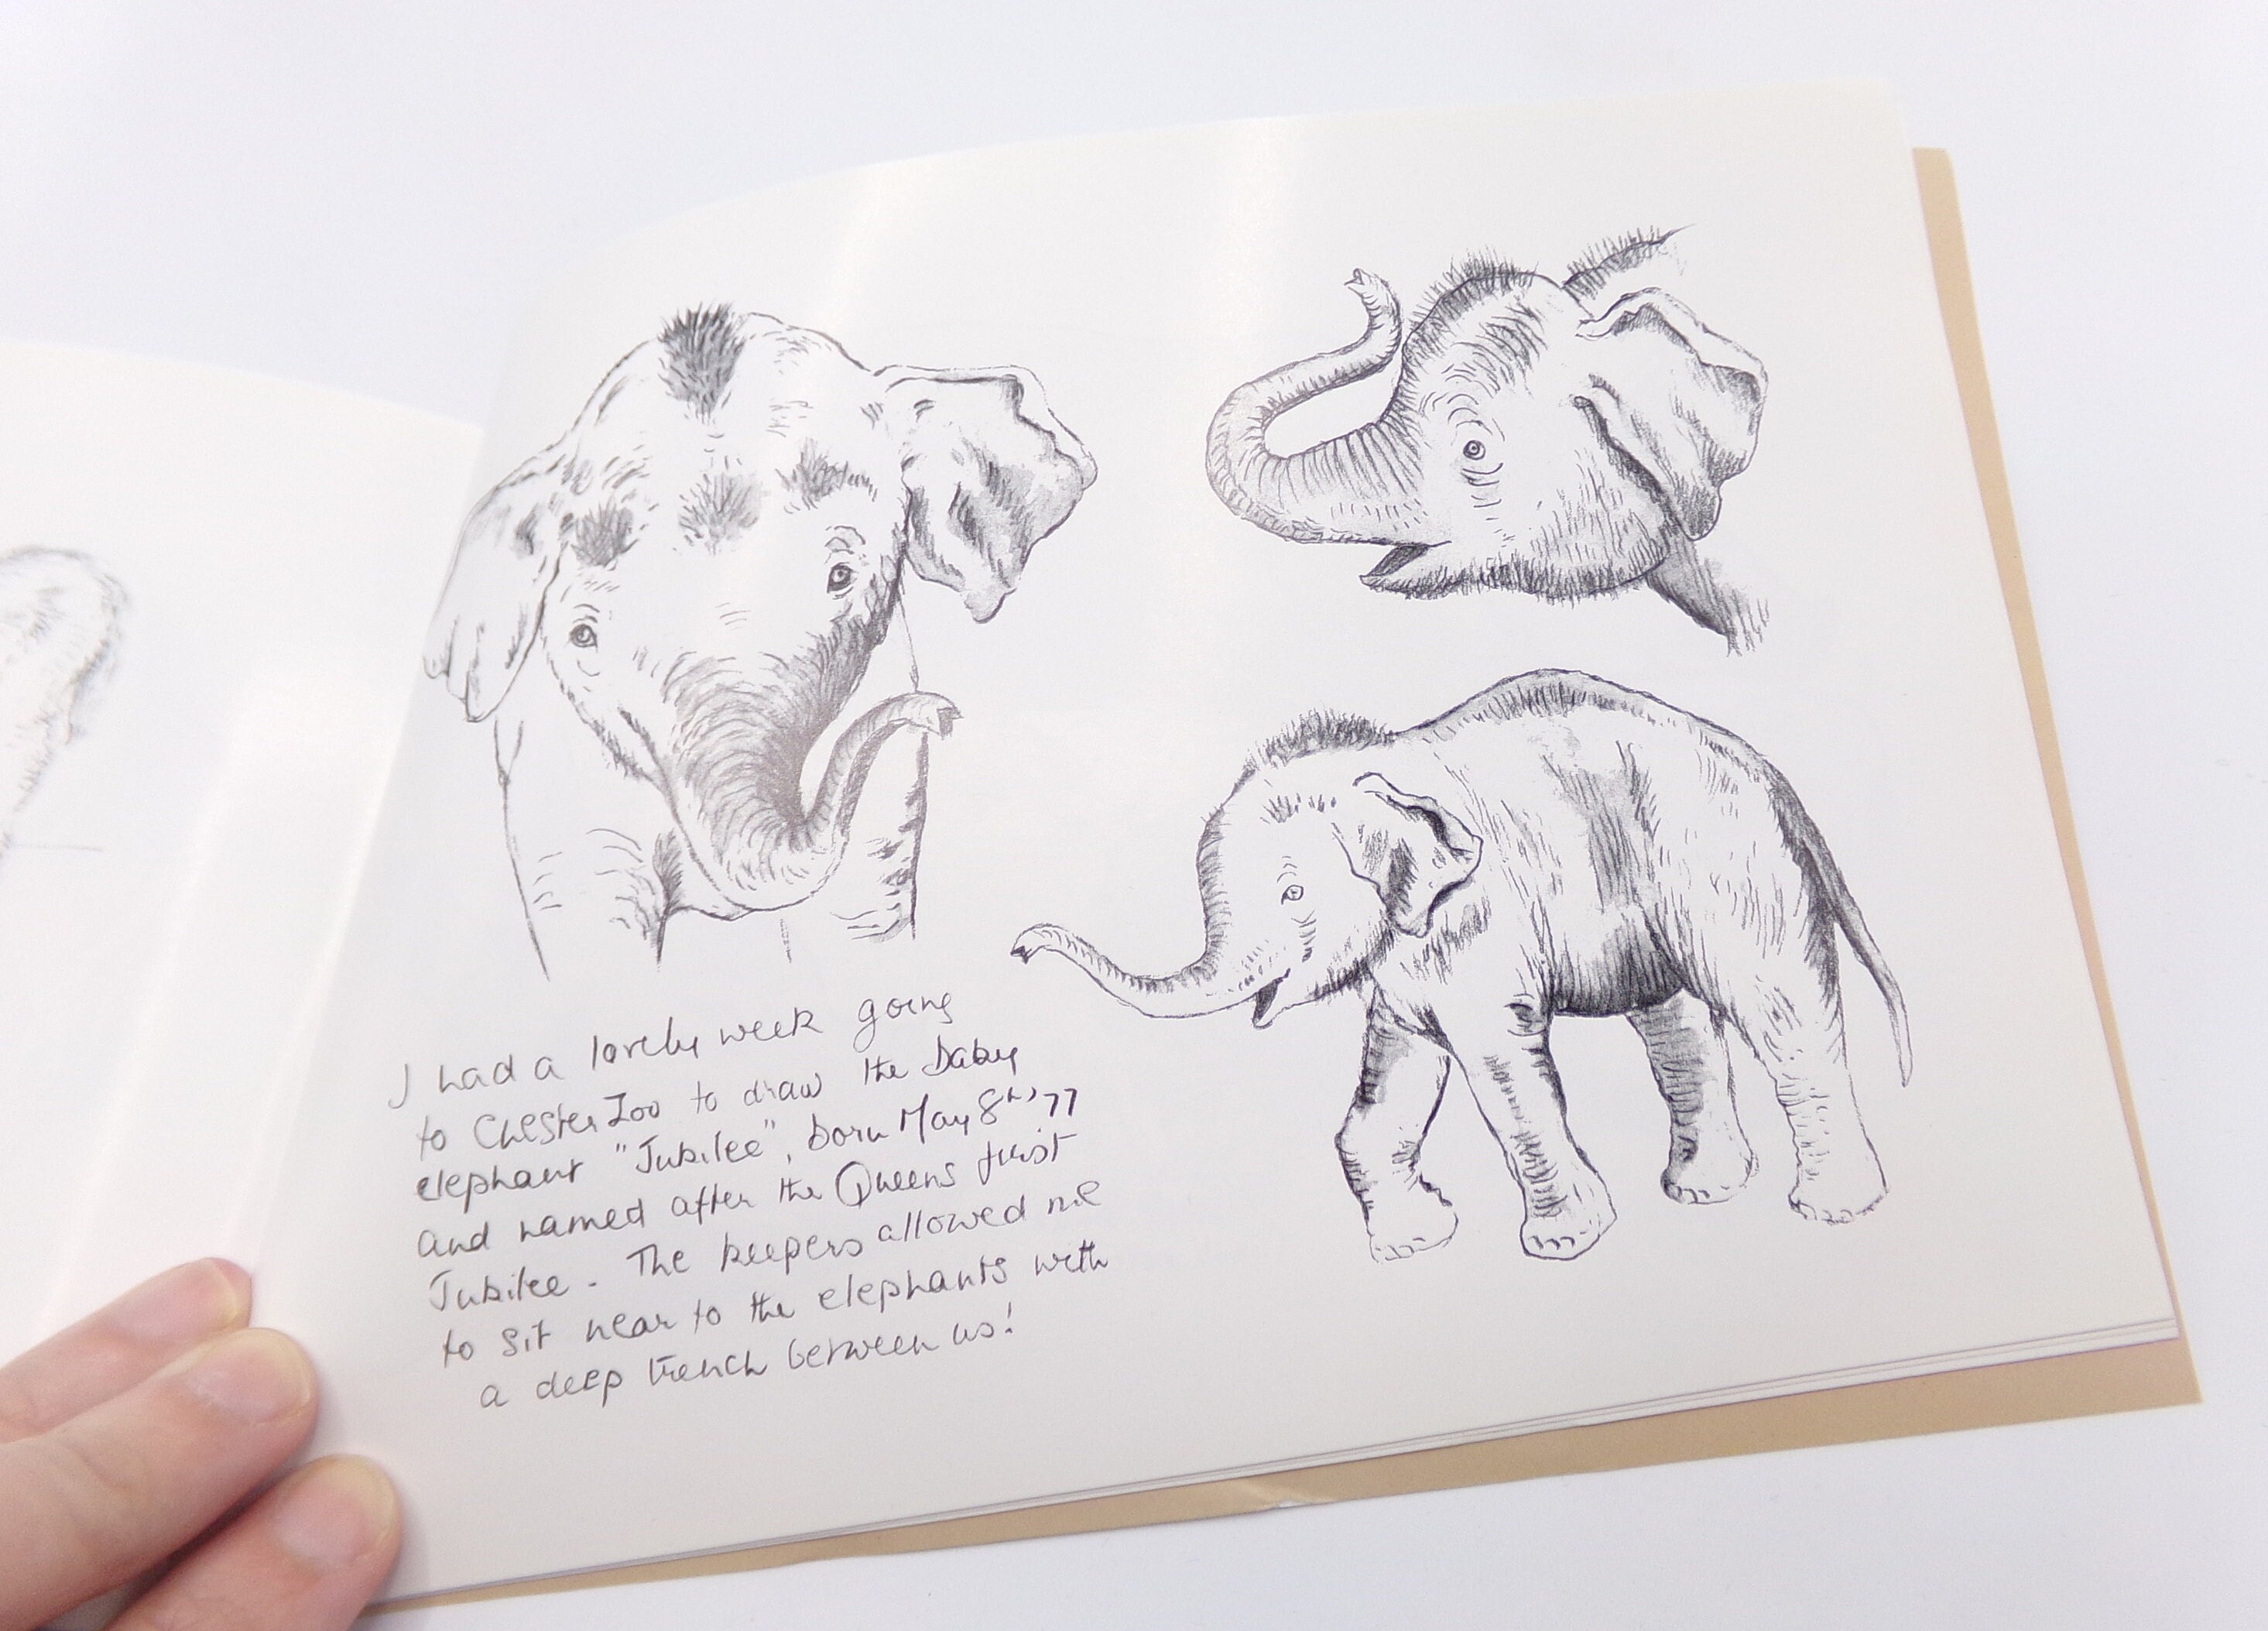 I had a lovely week going
to Chester Zoo to draw the baby
elephant "Jubilee", born May 8th '77
and named after the Queens first
Jubilee. The keepers allowed me
to sit near to the elephants with
a deep trench between us!